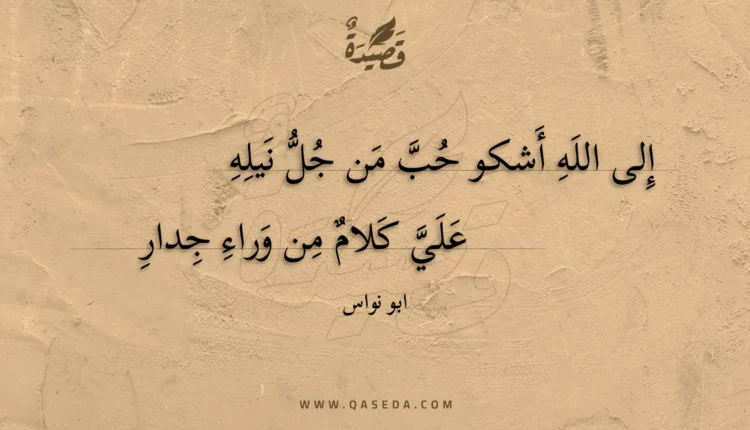 قَصِيدَةٌ
إِلى اللَهِ أَشكو حُبَّ مَن جُلُّ نَيلِهِ
عَلَيَّ كَلامٌ مِن وَراءِ جِدارِ
ابو نواس
WWW.QASEDA.COM